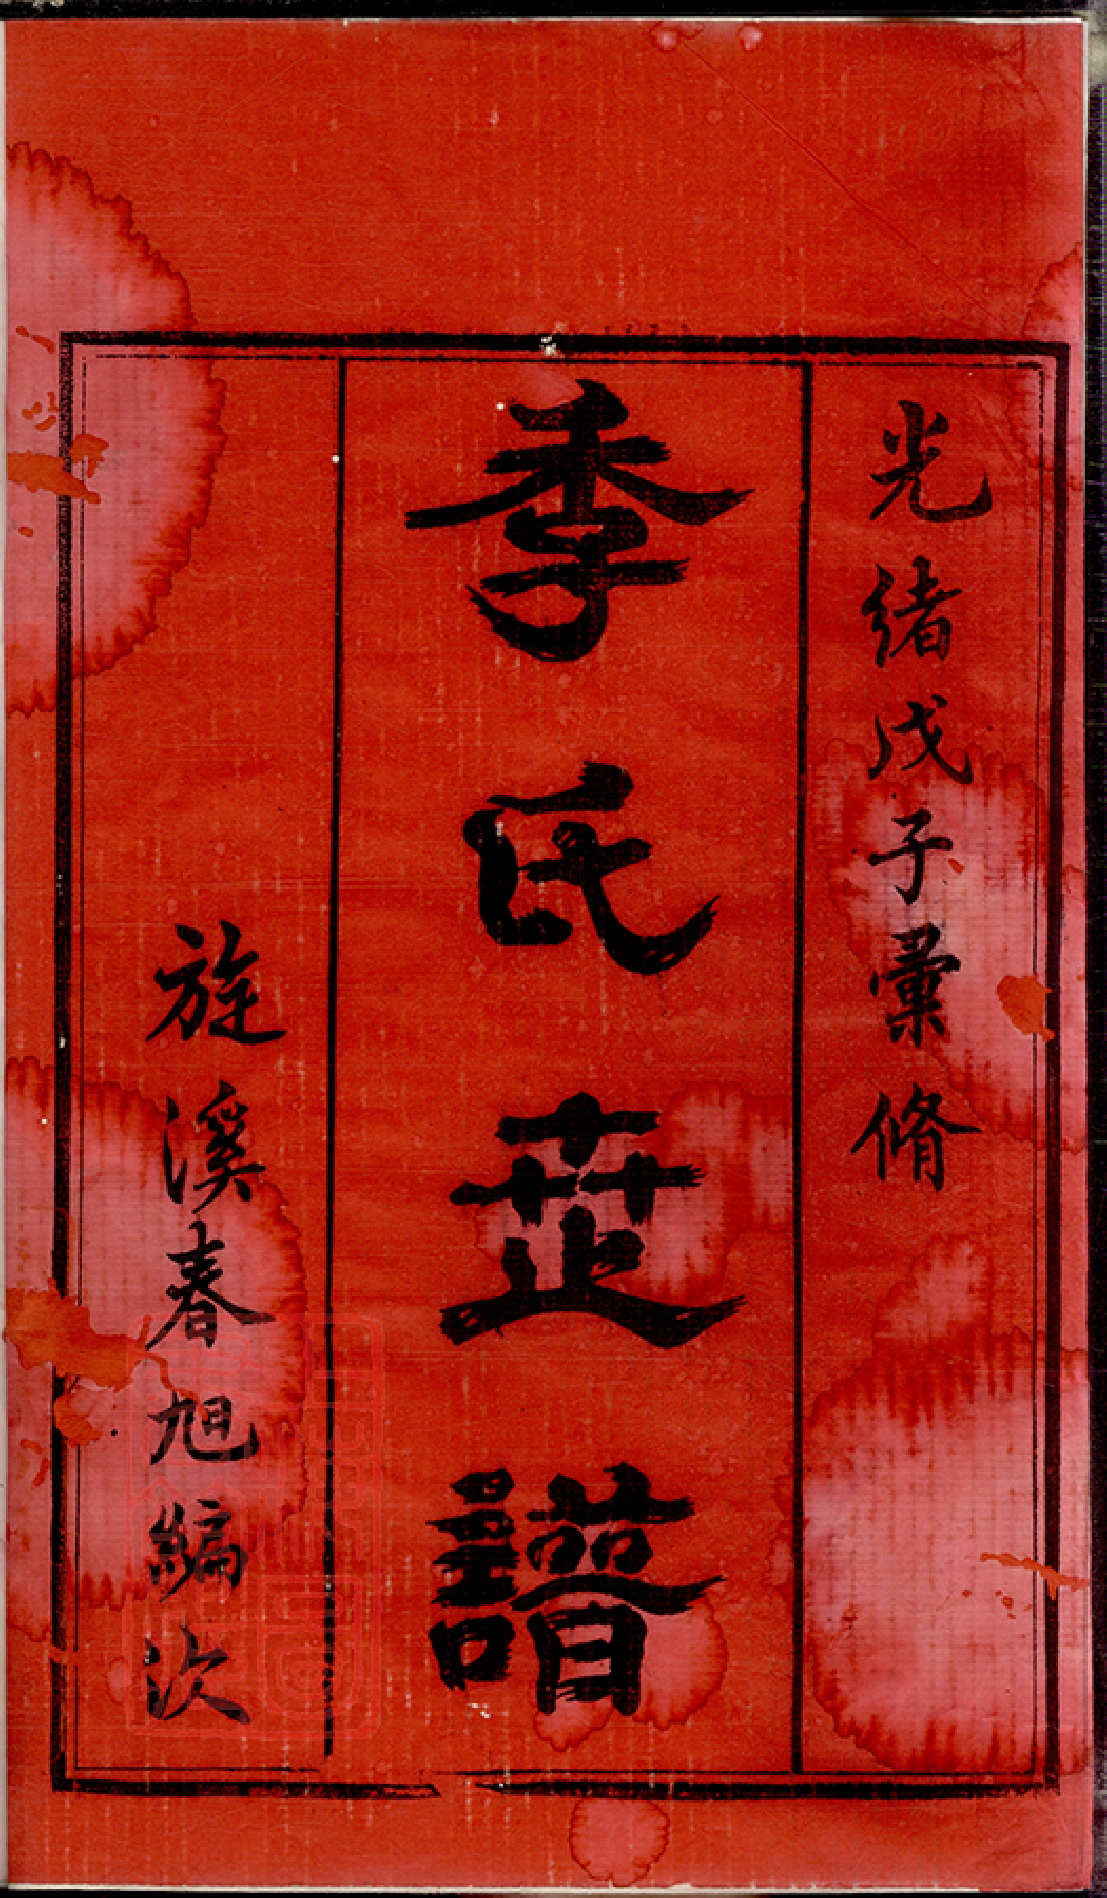 光緒戊子彙脩
季氏世譜
旋溪春旭編次